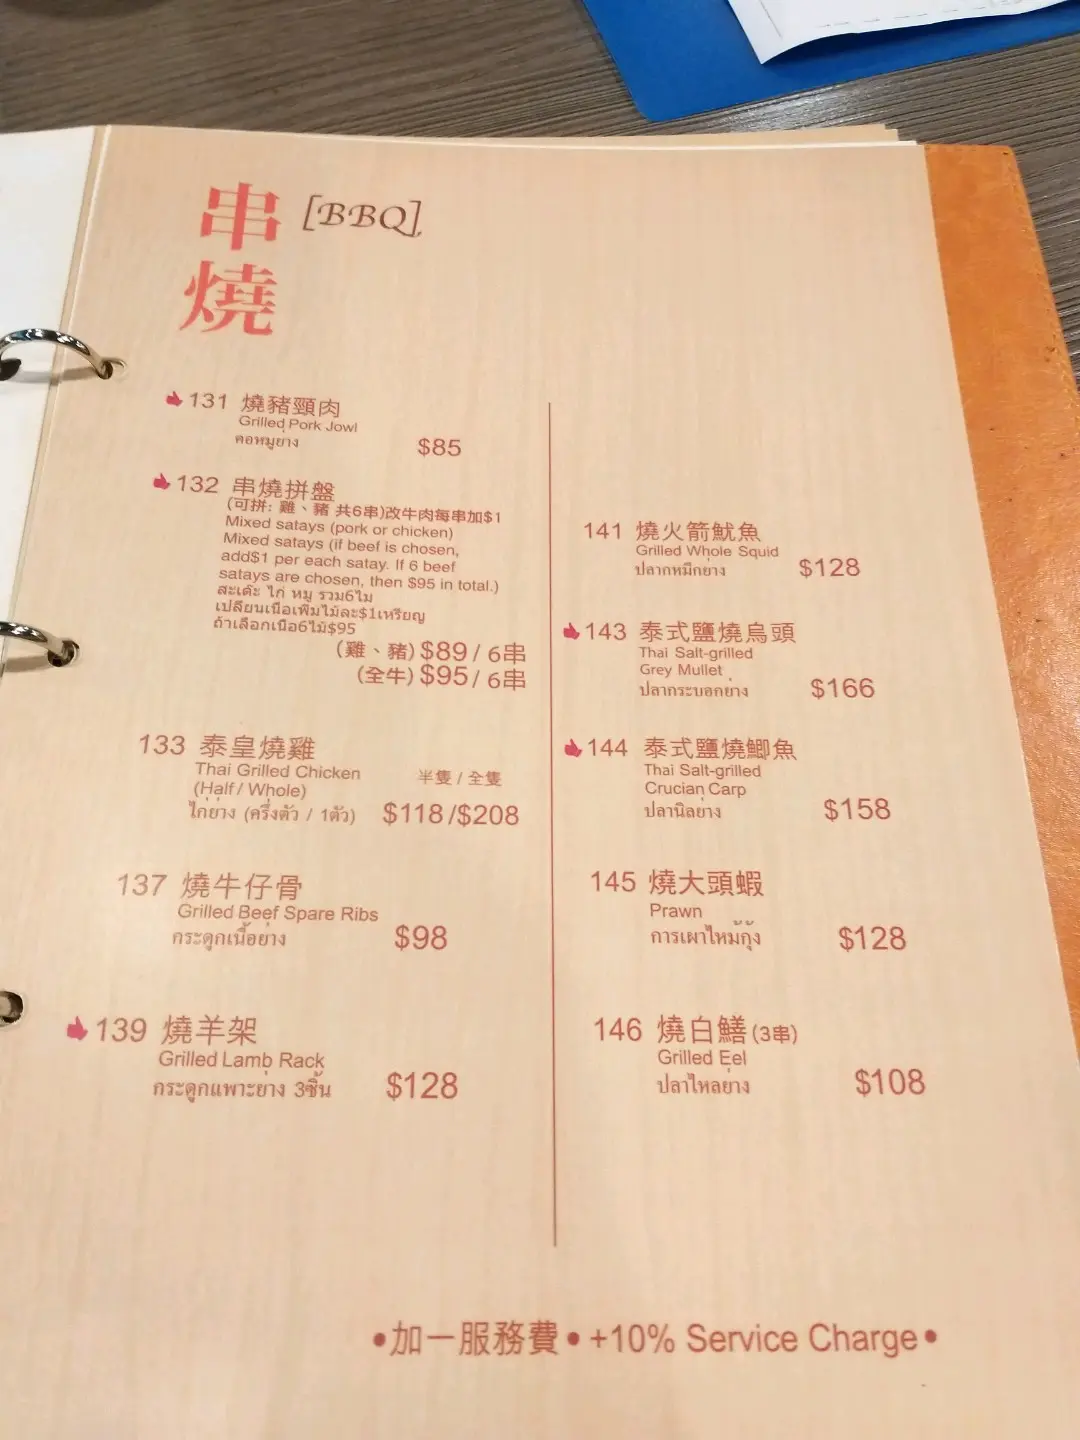 串燒 [BBQ]
131 燒豬頸肉
Grilled Pork Jowl
คอหมูย่าง
$85
132 串燒拼盤
(可拼: 雞、豬 共6串)改牛肉每串加$1
Mixed satays (pork or chicken)
Mixed satays (if beef is chosen,
add$1 per each satay. If 6 beef
satays are chosen, then $95 in total.)
สะเต๊ะ ไก่ หมู รวม6ไม้
เปลี่ยนเนื้อเพิ่มไม้ละ$1เหรียญ
ถ้าเลือกเนื้อ6ไม้$95
(雞、豬) $89 / 6串
(全牛) $95 / 6串
133 泰皇燒雞
Thai Grilled Chicken
(Half / Whole)
半隻 / 全隻
ไก่ย่าง (ครึ่งตัว / 1ตัว)
$118 /$208
137 燒牛仔骨
Grilled Beef Spare Ribs
กระดูกเนื้อย่าง
$98
139 燒羊架
Grilled Lamb Rack
กระดูกแพาะย่าง 3ชิ้น
$128
141 燒火箭魷魚
Grilled Whole Squid
ปลากหมึกยาง
$128
143 泰式鹽燒烏頭
Thai Salt-grilled
Grey Mullet
ปลากระบอกย่าง
$166
144 泰式鹽燒鯽魚
Thai Salt-grilled
Crucian Carp
ปลานิลย่าง
$158
145 燒大頭蝦
Prawn
การเผาไหม้กุ้ง
$128
146 燒白鱔 (3串)
Grilled Eel
ปลาไหลย่าง
$108
•加一服務費• +10% Service Charge•